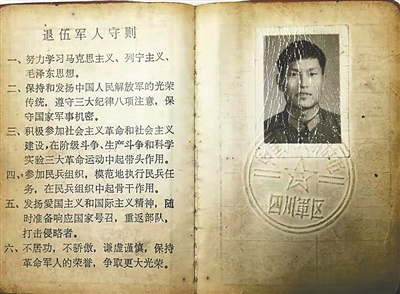 退伍军人守则
一、努力学习马克思主义、列宁主义、
毛泽东思想。
二、保持和发扬中国人民解放军的光荣
传统，遵守三大纪律八项注意，保
守国家军事机密。
三、积极参加社会主义革命和社会主义
建设，在阶级斗争、生产斗争和科学
实验三大革命运动中起带头作用。
四、参加民兵组织，模范地执行民兵任
务，在民兵组织中起骨干作用。
五、发扬爱国主义和国际主义精神，随
时准备响应国家号召，重返部队，
打击侵略者。
六、不居功，不骄傲，谦虚谨慎，保持
革命军人的荣誉，争取更大光荣。
四川军区